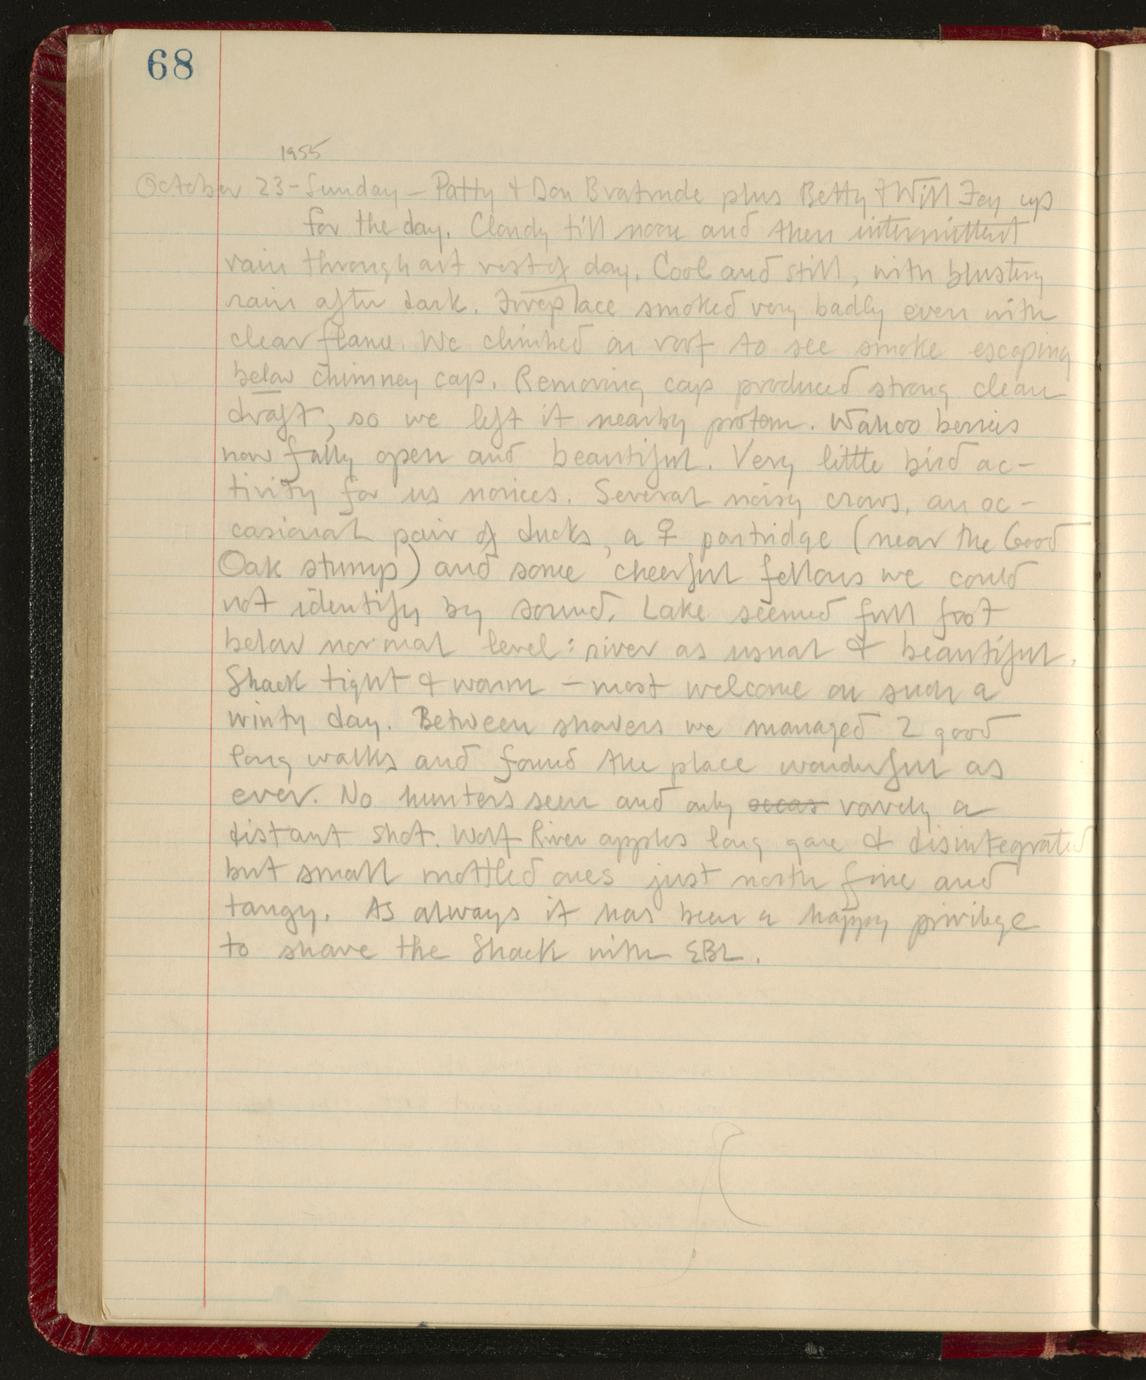 68
1955
October 23 - Sunday - Patty & Don Bratrude plus Betty & Will Fey up
for the day. Cloudy till noon and then intermittent
rain throughout rest of day. Cool and still, with blustery
rain after dark. Fireplace smoked very badly even with
clear flame. We climbed on roof to see smoke escaping
below chimney cap. Removing cap produced strong clean
draft, so we left it nearby protem. Wahoo berries
now fully open and beautiful. Very little bird ac-
tivity for us novices. Several noisy crows, an oc-
casional pair of ducks, a ♀ partridge (near the Good
Oak stump) and some cheerful fellows we could
not identify by sound. Lake seemed full foot
below normal level: river as usual & beautiful.
Shack tight & warm - most welcome on such a
winty day. Between showers we managed 2 good
long walks and found the place wonderful as
ever. No hunters seen and only occas rarely a
distant shot. Wolf River apples long gone & disintegrated
but small mottled ones just north fine and
tangy. As always it has been a happy privilege
to share the Shack with EBL.